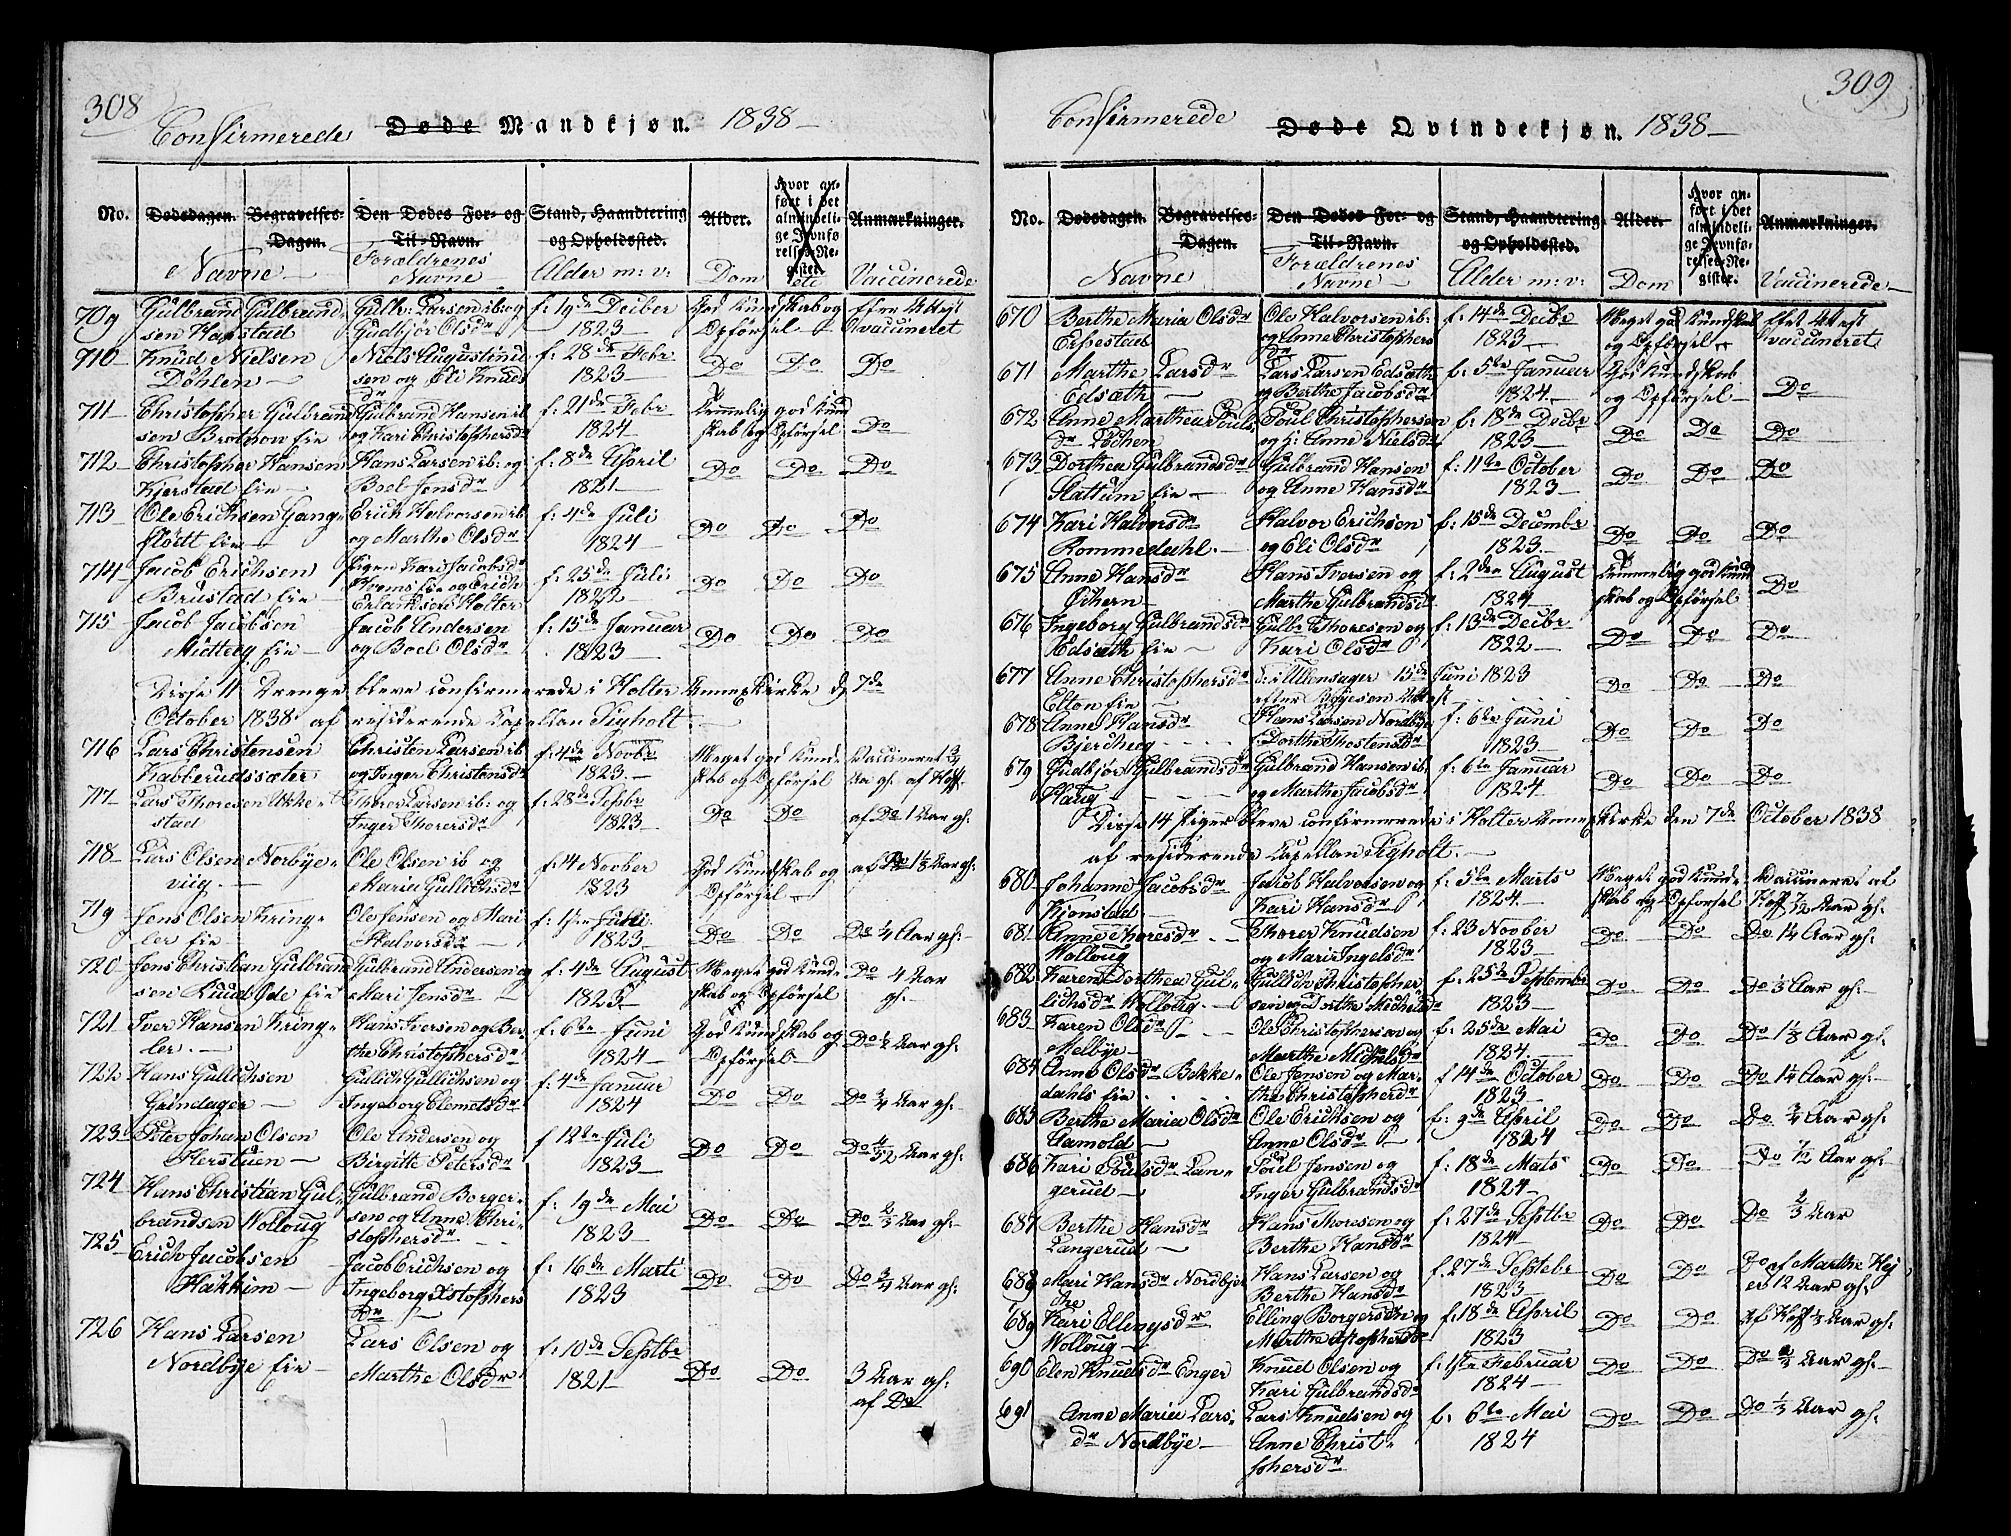 308
Confirmerede Døde Mandkjøn. 1838
No. Dødsdagen. Begravelses-Dagen. Den Dødes For- og Til-Navn. Stand, Haandtering og Opholdssted. Alder. Hvor anført i det almindelige Jevnførelses-Register. Anmærkninger.
Navne Forældrenes Navne Alder m: v: Dom Vaccinerede
709 Gulbrand Gulbrand- Gulbr: Larsen ib: og f: 19de Decbr God Kundskab og
sen Harstad Gudbjør Olsdr 1823 Opførsel vaccineret
710 Knud Nielsen Niels Augustinu f: 28de Febr Do Do Do
Døhlen sen og Eli Knuds dr 1823
711 Christopher Gulbrand Gulbrand Hansen ib f: 21de Febr Temmelig god Kund
sen Brotnow Eie og Kari Christophersdr 1824 skab og Opførsel Do
712 Christopher Hansen Hans Larsen ib: og f: 8de April Do Do Do
Kjerstad Eie Boel Jensdr 1821
713 Ole Erichsen Gang- Erich Halvorsen ib f: 4de Juli Do Do Do
flødt Eie og Marthe Olsdr 1824
714 Jacob Erichsen Pigen Kari Jacobsdr f: 25de Juli Do Do Do
Brustad Eie og Erich Erlandsen Holter 1822
715 Jacob Jacobsen Jacob Andersen f: 15de Januar Do Do Do
Midtbg Eie og Boel Olsdr 1823
Disse 11 Drenge bleve confirmerede i Holter Annexkirke d 7de
October 1838 af residerende Capellan Sigholt.
716 Lars Christensen Christen Larsen ib f: 4de Novbr Meget god Kund- Vaccineret 3/4
Kabberudsæter og Inger Christensdr 1823 skab og Opførsel Aar gl. af Hoff
717 Lars Thoresen Ukke- Thorer Larsen ib: og f: 28de Septbr Do Do af Do 1 Aar gl.
stad Inger Thorersdr 1823
718 Lars Olsen Norbye- Ole Olsen ib og f: 14 Novber God Kundskab og af Do 1 1/8 Aar gl.
viig Maria Gullichsdr 1823 Opførsel
719 Jens Olsen Kring- Ole Jensen og Mari f: 1ste Juli Do Do Do 1/4 Aar gl.
ler Eie Halvorsdr 1823
720 Jens Christian Gulbrand Gulbrand Andersen og f: 4de August Meget god Kund- Do 4 Aar
sen Ruud Øde Eie Mari Jensdr 1823 skab og Opførsel gl.
721 Iver Hansen Kring- Hans Iversen og Ber- f: 6te Juni God Kundskab og Do 1/2 Aar gl.
ler the Christophersdr 1824 Opførsel
722 Hans Gullichsen Gullich Gullichsen og f: 4de Januar Do Do Do 3/4 Aar gl.
Grindager Ingeborg Clemetsdr 1824
723 Peter Johan Olsen Ole Andersen og f 12te Juli Do Do Do Aar gl.
Herstuen Birgitte Petersdr 1823
724 Hans Christian Gul- Gulbrand Borger- f: 19de Mai Do Do Do 2/3 Aar gl.
brandsen Wolloug sen og Anne Chri- stophersdr 1823
725 Erich Jacobsen Jacob Erichsen og f: 16de Marti Do Do Do 3/4 Aar gl.
Hakkim Ingeborg Xstophers dr 1823
726 Hans Larsen Lars Olsen og f: 10de Septbr Do Do 3 Aar gl.
Nordbye Eie Marthe Olsdr 1821 af Do
309
Confirmerede Døde Qvindekjøn. 1838
No. Dødsdagen. Begravelses-Dagen. Den Dødes For- og Til-Navn. Stand, Haandtering og Opholdssted. Alder. Hvor anført i det almindelige Jevnførelses-Register. Anmærkninger.
Navne Forældrenes Navne Alder m: v: Dom Vaccinerede
670 Berthe Maria Olsdr Ole Halvorsen ib: f: 14de Decbr Meget god Kundskab
Eissestad og Anne Christophers dr 1823 og Opførsel vaccineret
671 Marthe Larsdr Lars Larsen Edsath f: 5te Januar God Kundskab
Edsath og Berthe Jacobsdr 1824 og Opførsel Do
672 Anne Marthea Pouls Poul Christophersen f: 18de Decbr Do Do Do
dr Løchen og h: Anne Nielsdr 1823
673 Dorthea Gulbrandsdr Gulbrand Hansen f: 11te October Do Do Do
Slattum Eie og Anne Hansdr 1823
674 Kari Halvorsdr Halvor Erichsen f: 15de Decembr Do Do Do
Rommedahl og Eli Olsdr 1823
675 Anne Hansdr Hans Iversen og f: 2den August Temmelig god Kund Do
Odhern Marthe Gulbrandsdr 1824 skab og Opførsel
676 Ingeborg Gulbrandsdr Gulbr. Thoresen og f: 13de Decbr Do Do Do
Edsath Eie Kari Olsdr 1822
677 Anne Christophersdr d: i Ullensager 15de Juni 1823 Do Do Do
Elton Eie efter Attest
678 Anne Hansdr Hans Larsen Nordbye f: 6te Juni Do Do Do
Bjerkeg Dorthe Thostensdr 1823
679 Gudbjør Gulbrandsdr Gulbrand Hansen ib. f: 6te Januar Do Do Do
Haug og Marthe Jacobsdr 1824
Disse 14 Piger bleve confirmerede i Holter Annexkirke den 7de October 1838
af residerende Capellan Sigholt.
680 Johanne Jacobsdr Jacob Halvorsen og f: 5te Marts Meget god Kund- Vaccineret af
Kjonstad Kari Hansdr 1824 skab og Opførsel Hoff 1/2 Aar gl.
681 Anne Thoresdr Thorer Knudsen f: 23 Novber Do Do Do 1/4 Aar gl.
Wolloug og Mari Ingelsdr 1823
682 Karen Dorthea Gul- Gullich Christopher f: 25de Septembr Do Do Do 1/3 Aar gl.
lichsdr Wolloug sen og Dorthe Michelsdr 1823
683 Karen Olsdr Ole Christophersen og f: 25de Mai Do Do Do 1 1/8 Aar gl.
Melbye Marthe Michelsdr 1824
684 Anne Olsdr Bekke- Ole Jensen og Mar- f 14de October Do Do Do 1/4 Aar gl.
dahls Eie the Christopherdr 1823
685 Berthe Maria Olsdr Ole Erichsen og f: 9de April Do Do Do 3/4 Aar gl.
Aamold Anne Olsdr 1824
686 Kari Poulsdr Lan- Poul Jensen og f: 18de Mats Do Do Do 1/2 Aar gl.
gerud Inger Gulbrandsdr 1824
687 Berthe Hansdr Hans Thoresen og f: 27de Septbr Do Do Do 2/3 Aar
Langerud Berthe Hansdr 1824
688 Mari Hansdr Nordbye Hans Larsen og f. 27de Septebr Do Do Do af Marthe Hej
Berthe Hansdr 1823 er 12 Aar gl.
689 Kari Ellingsdr Elling Borgersen og f. 18de April Do Do Af Hoff 1/3 Aar gl.
Wolloug Marthe Xstophersdr 1823
690 Elen Knudsdr Enger Knud Olsen og f: 1ste Februar Do Do Do 2/3 Aar gl.
Kari Gulbrandsdr 1824
691 Anne Maria Lars- Lars Knudsen og f: 6te Mai Do Do Do 1/3 Aar gl.
dr Nordbye Anne Christ- 1824
phersdr